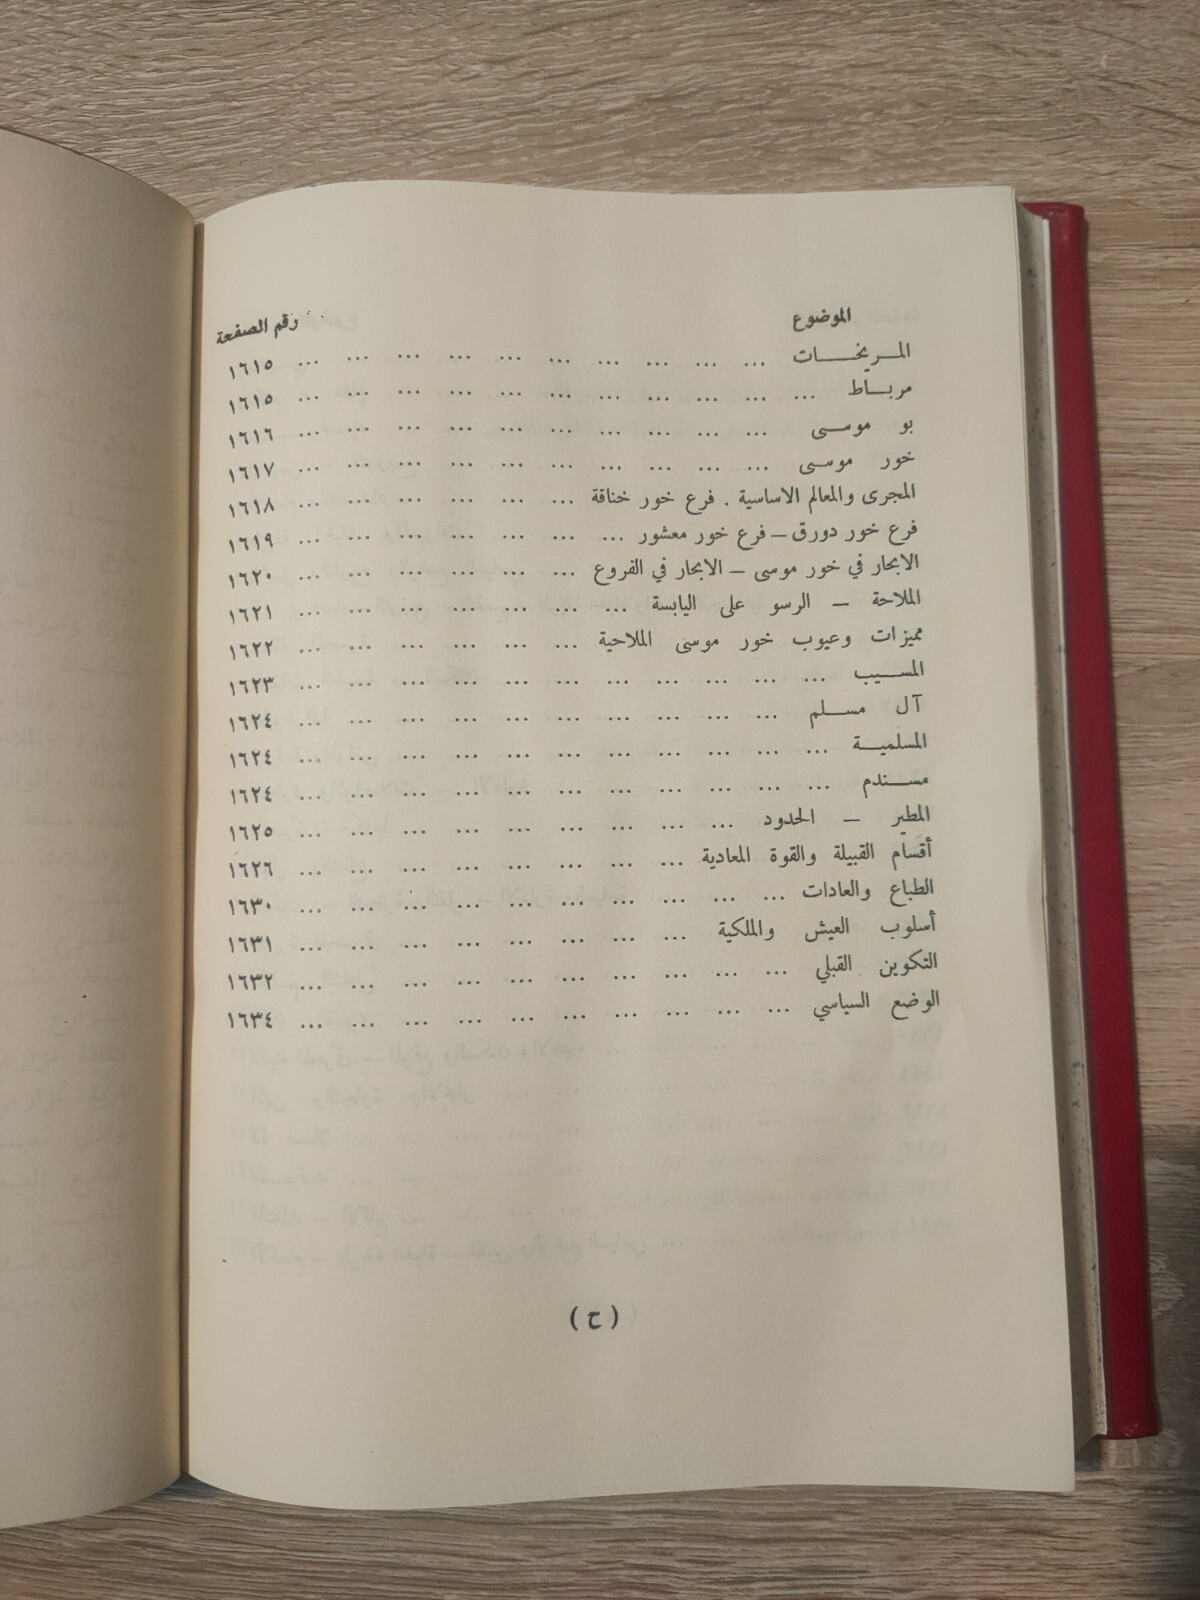 الموضوع رقم الصفحة
المـريخـــات ... ... ... ... ... ... ... ... ... ... ١٦١٥
مربـــاط ... ... ... ... ... ... ... ... ... ... ... ١٦١٥
بو موســى ... ... ... ... ... ... ... ... ... ... ١٦١٦
خور موسـى ... ... ... ... ... ... ... ... ... ... ١٦١٧
المجرى والمعالم الاساسية . فرع خور خناقة ... ... ... ... ... ... ١٦١٨
فرع خور دورق – فرع خور معشور ... ... ... ... ... ... ... ١٦١٩
الابحار في خور موسى – الابحار في الفروع ... ... ... ... ... ... ١٦٢٠
الملاحة – الرسو على اليابسة ... ... ... ... ... ... ... ١٦٢١
مميزات وعيوب خور موسى الملاحية ... ... ... ... ... ... ١٦٢٢
المســـيب ... ... ... ... ... ... ... ... ... ... ... ١٦٢٣
آل مســـلم ... ... ... ... ... ... ... ... ... ... ١٦٢٤
المسلميـــة ... ... ... ... ... ... ... ... ... ... ... ١٦٢٤
مســـندم ... ... ... ... ... ... ... ... ... ... ... ١٦٢٤
المطير – الحدود ... ... ... ... ... ... ... ... ... ١٦٢٥
أقسام القبيلة والقوة المعادية ... ... ... ... ... ... ... ... ١٦٢٦
الطباع والعادات ... ... ... ... ... ... ... ... ... ... ١٦٣٠
أسلوب العيش والملكية ... ... ... ... ... ... ... ... ١٦٣١
التكوين القبلي ... ... ... ... ... ... ... ... ... ... ١٦٣٢
الوضع السياسي ... ... ... ... ... ... ... ... ... ... ١٦٣٤
( ح )